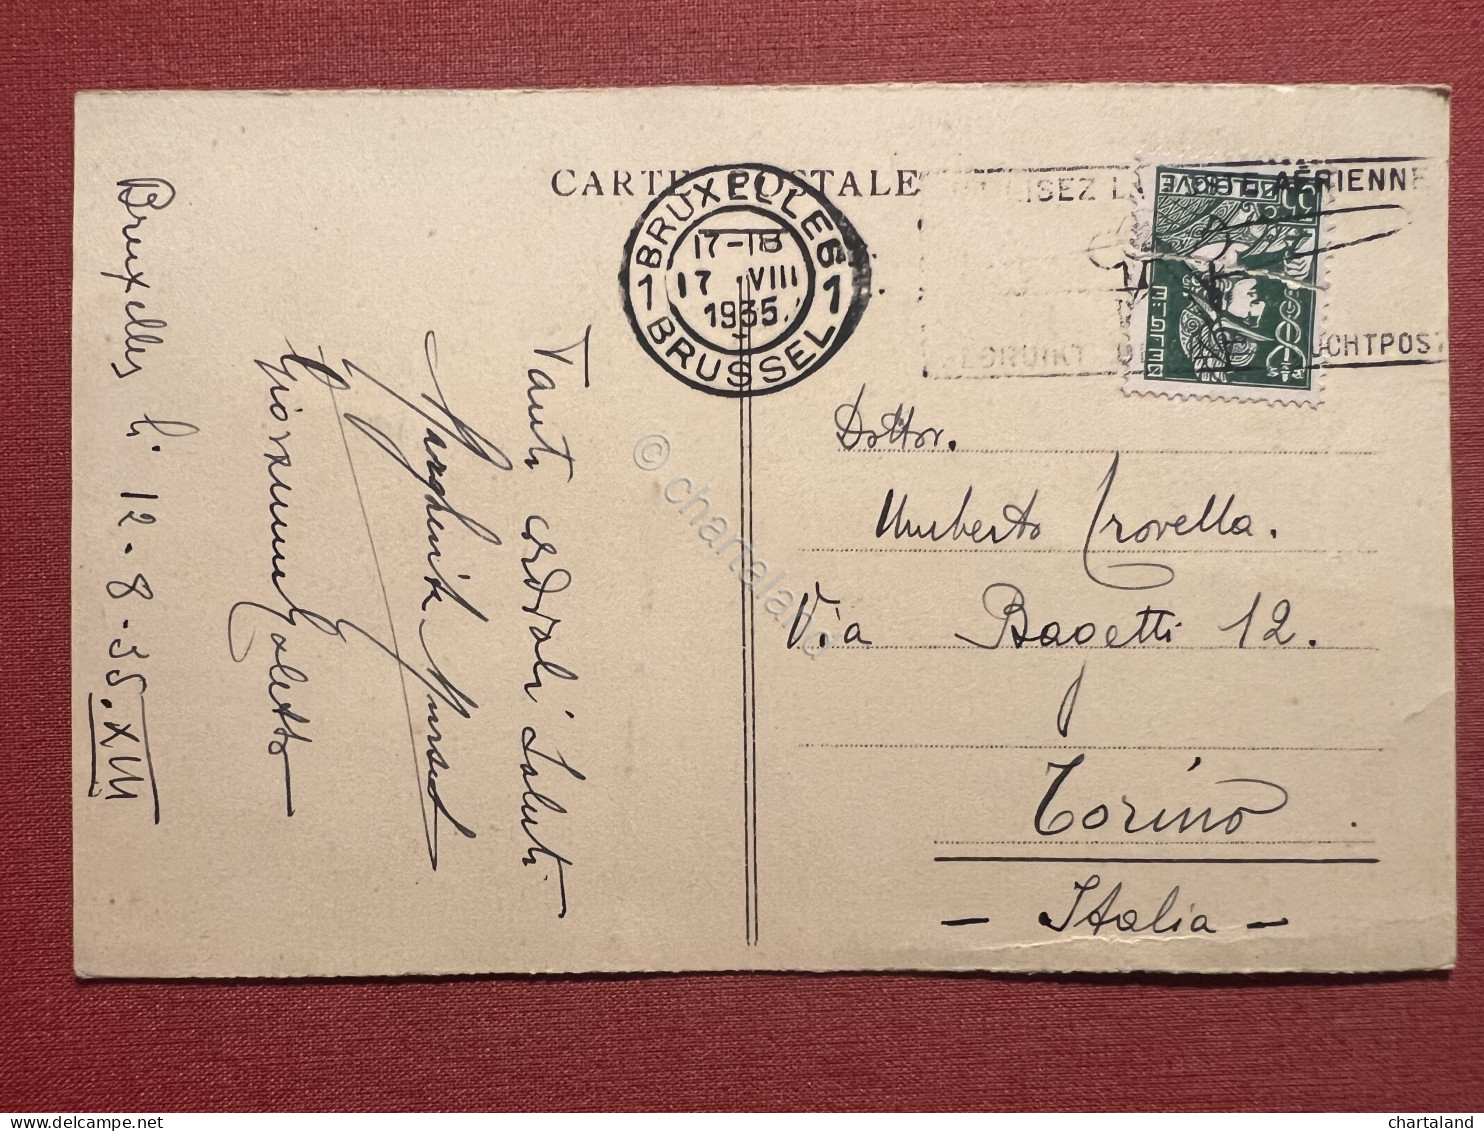 CARTE POSTALE
BRUXELLES
1 1
17-18
17 VIII
1935
BRUSSEL
UTILISEZ LA POSTE AÉRIENNE
GEBRUIKT DE LUCHTPOST
BELGIQUE
35
BELGIË
Dottor.
Umberto Crovella.
Via Bagetti 12.
Torino.
- Italia -
Bruxelles li 12-8-35.XIII
Tanti cordiali saluti
Margherita
Giovanni Galetto
© chartaland
chartaland